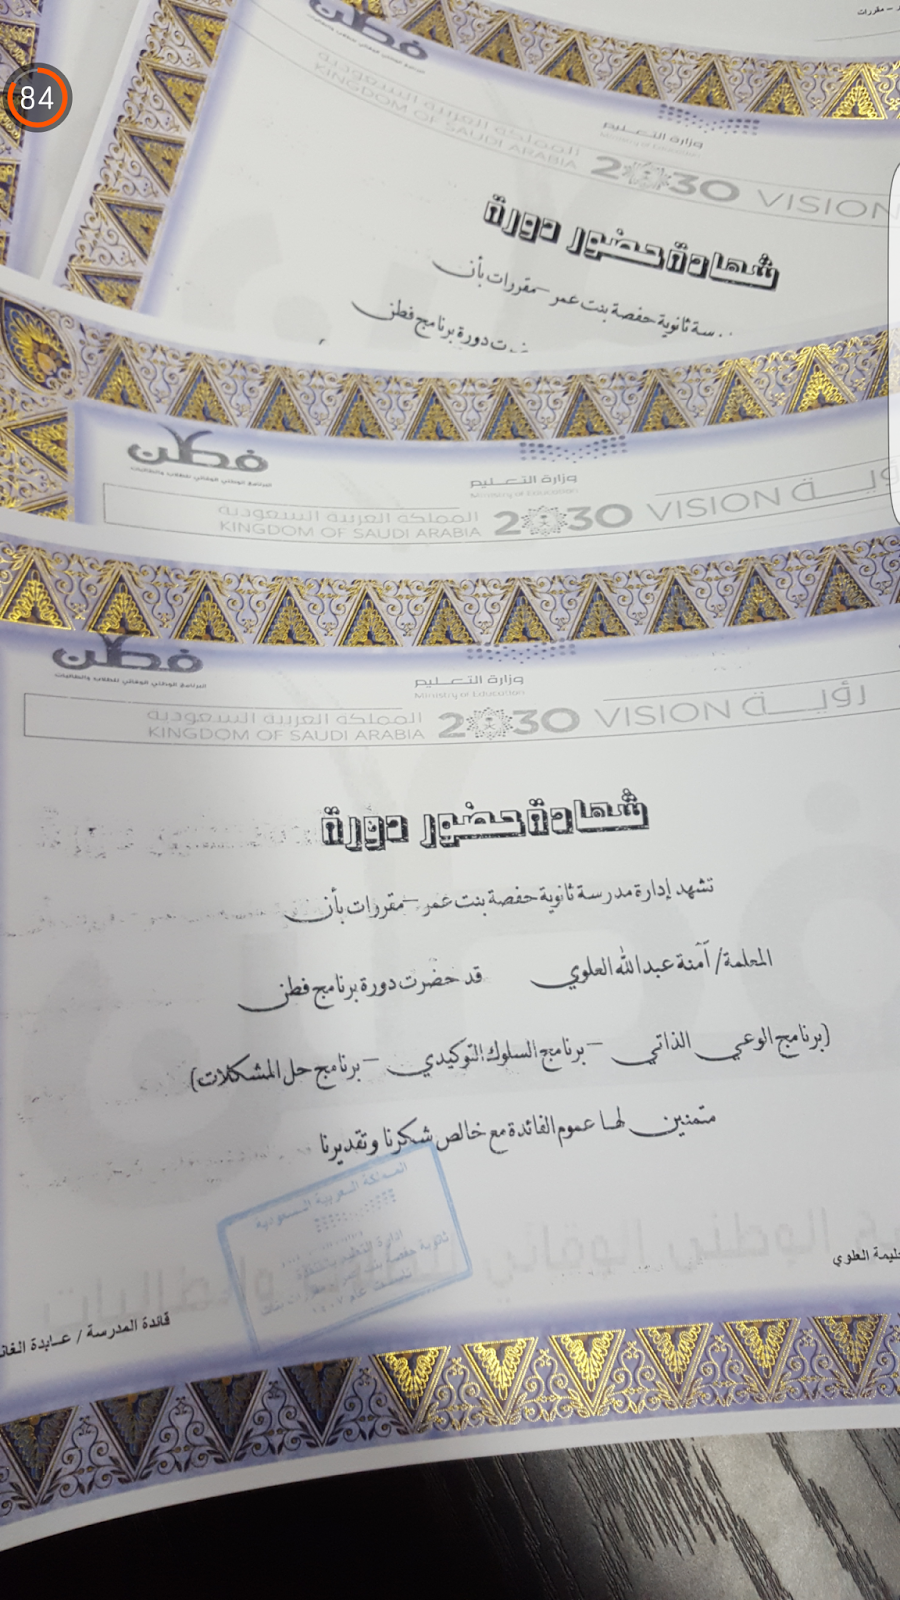 84
د – مقررات
فطن
وزارة التعليم
Ministry of Education
المملكة العربية السعودية
KINGDOM OF SAUDI ARABIA
2030 VISION
شهادة حضور دورة
سة ثانوية حفصة بنت عمر – مقررات بأن
ت دورة برنامج فطن
فطن
البرنامج الوطني الوقائي للطلاب والطالبات
وزارة التعليم
Ministry of Education
VISION
2030
المملكة العربية السعودية
KINGDOM OF SAUDI ARABIA
فطن
البرنامج الوطني الوقائي للطلاب والطالبات
وزارة التعليم
Ministry of Education
رؤية VISION
2030
المملكة العربية السعودية
KINGDOM OF SAUDI ARABIA
شهادة حضور دورة
تشهد إدارة مدرسة ثانوية حفصة بنت عمر – مقررات بأن
المعلمة / آمنة عبدالله العلوي قد حضرت دورة برنامج فطن
(برنامج الوعي الذاتي – برنامج السلوك التوكيدي – برنامج حل المشكلات)
متمنين لها عموم الفائدة مع خالص شكرنا وتقديرنا
المملكة العربية السعودية
ليمة العلوي
قائدة المدرسة / عابدة الغان